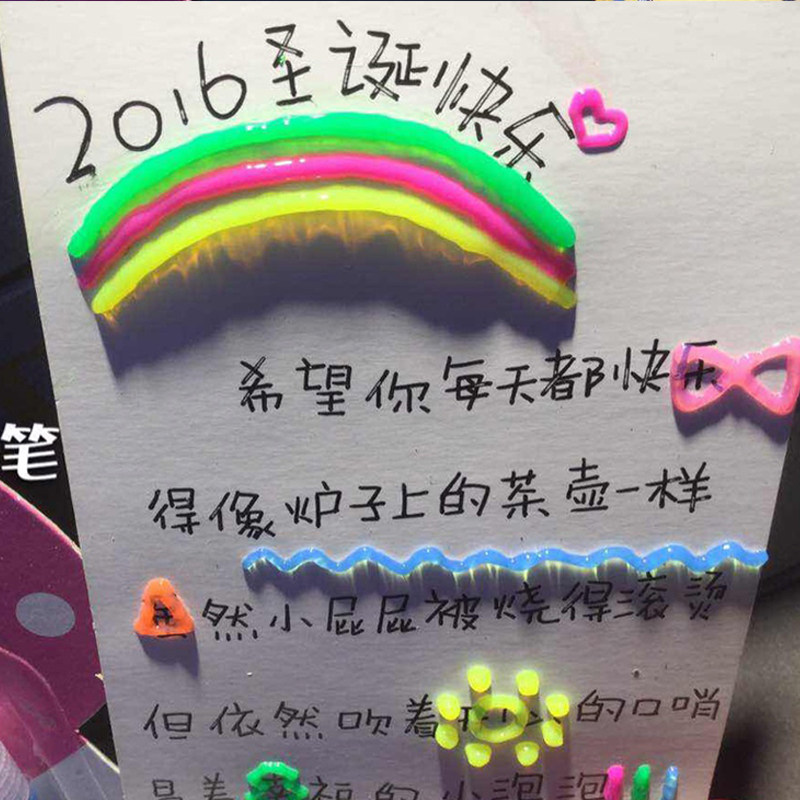 2016圣诞快乐
希望你每天都快乐
得像炉子上的茶壶一样
笔
虽然小屁屁被烧得滚烫
但依然吹着开心的口哨
冒着幸福的小泡泡